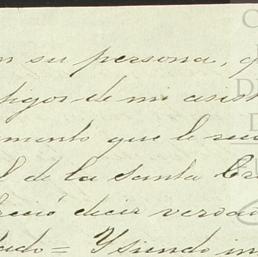 n su persona, q
tigos de mi asist
mento que le reci
l de la Santa Cru
freció decir verdad
tado = Y siendo in